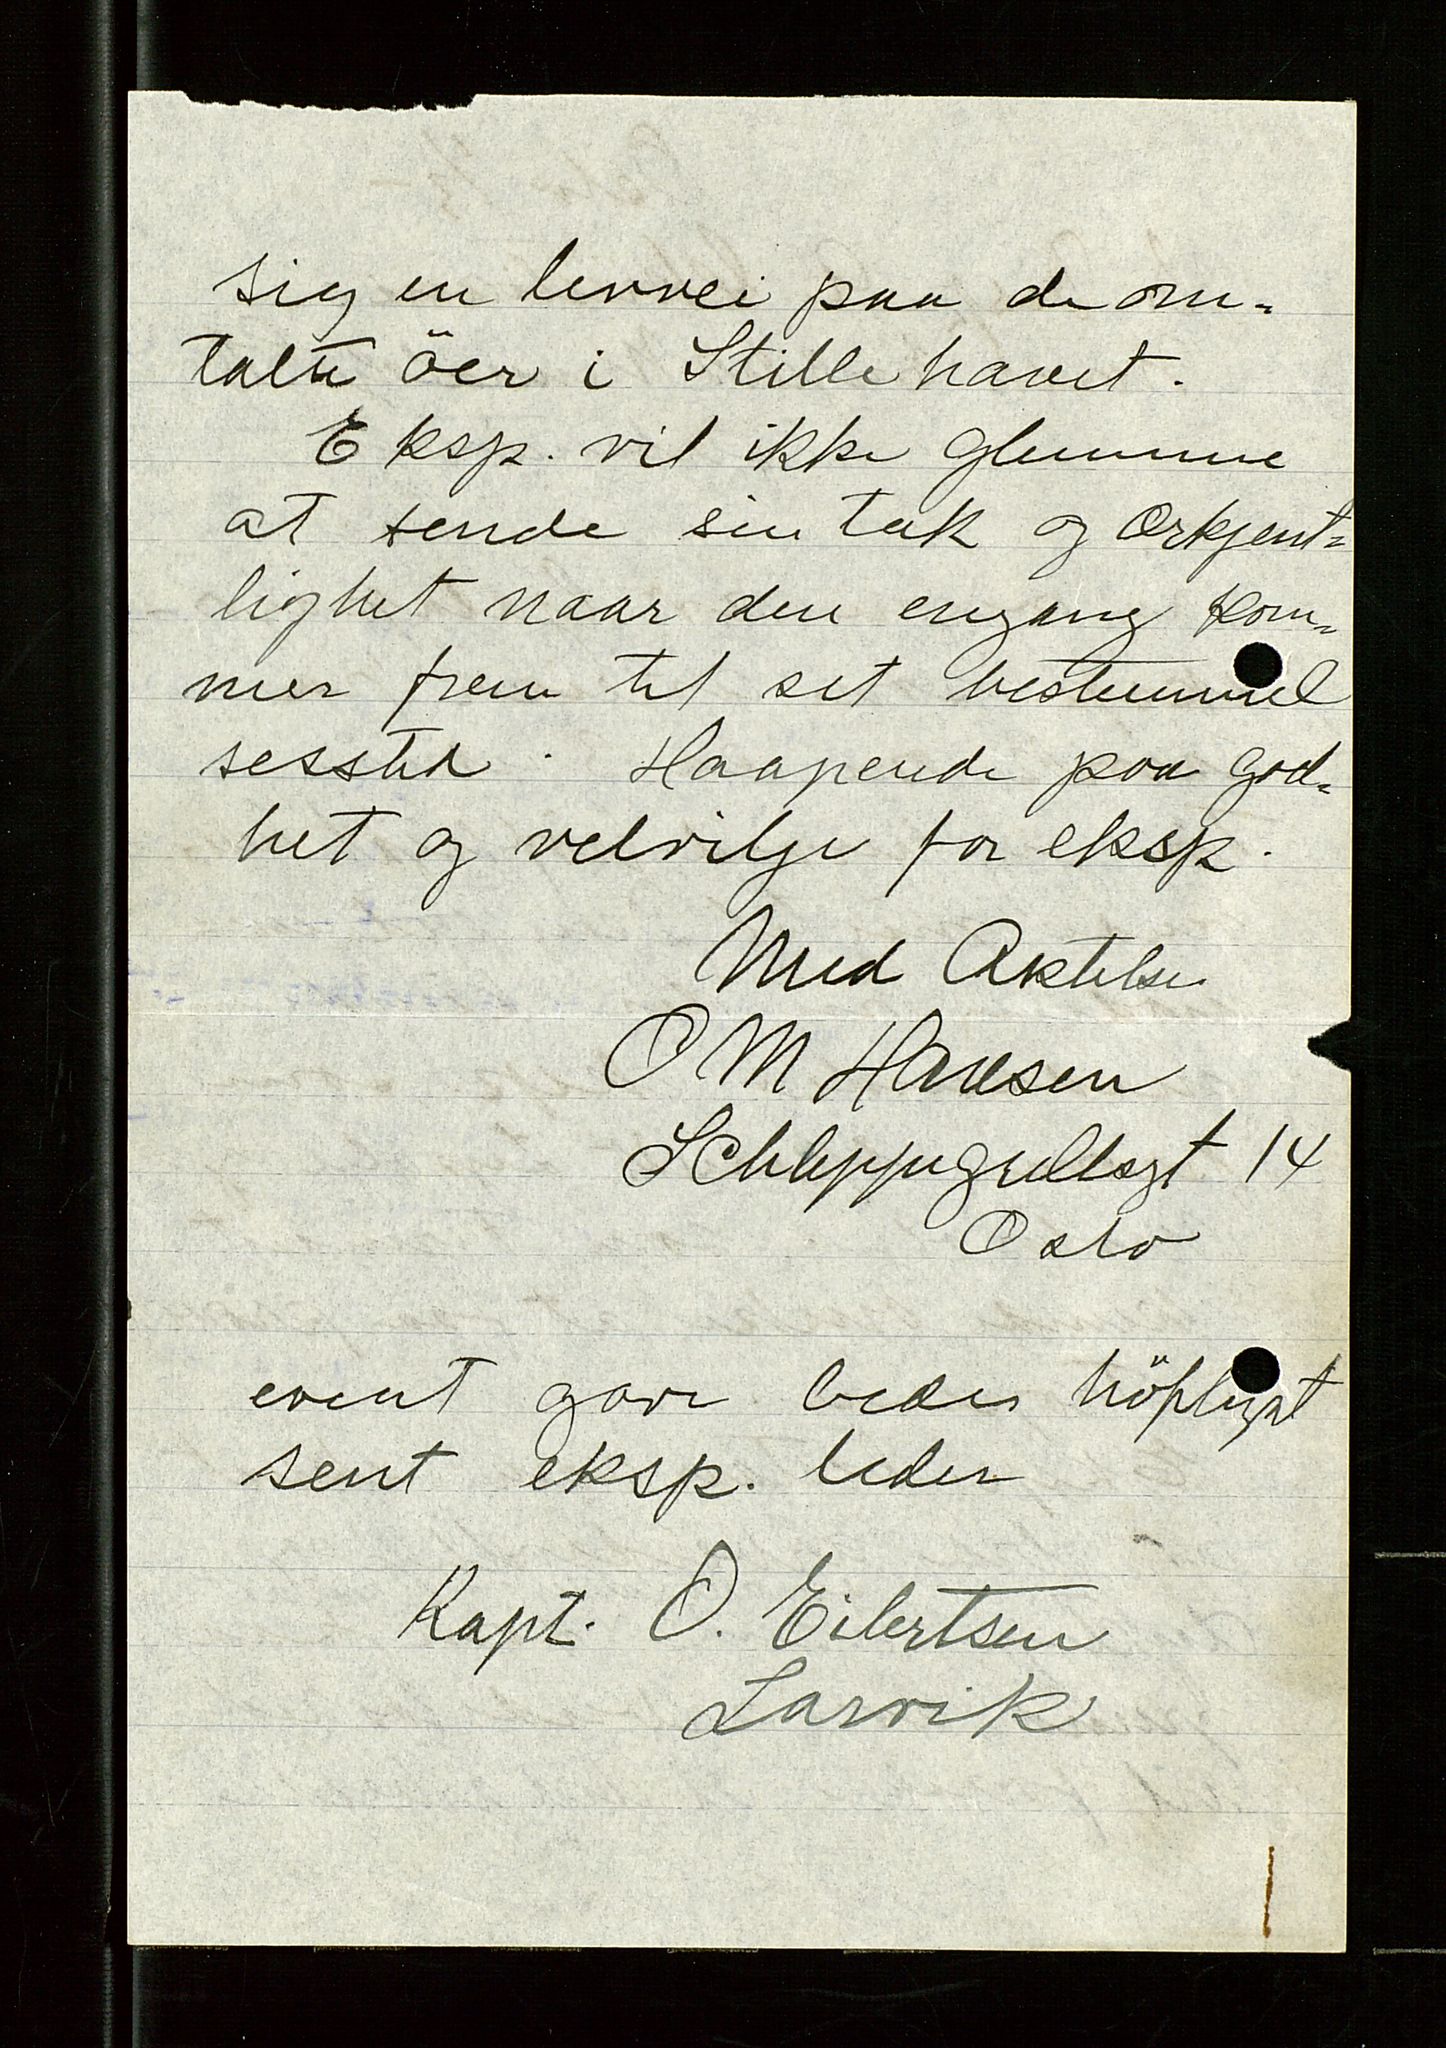 sig en levvei paa de om-
talte öer i Stillehavet.
Eksp. vil ikke glemme
at sende sin tak og ærkjent-
lighet naar den engang kom-
mer frem til sit bestemmel
sessted. Haapende paa god-
het og velvilje for eksp.
Med Aktelse
O M Hansen
Schleppegrellsgt 14
Oslo
event gave bedes höfligst
sent eksp. leder
Kapt. O. Eilertsen
Larvik